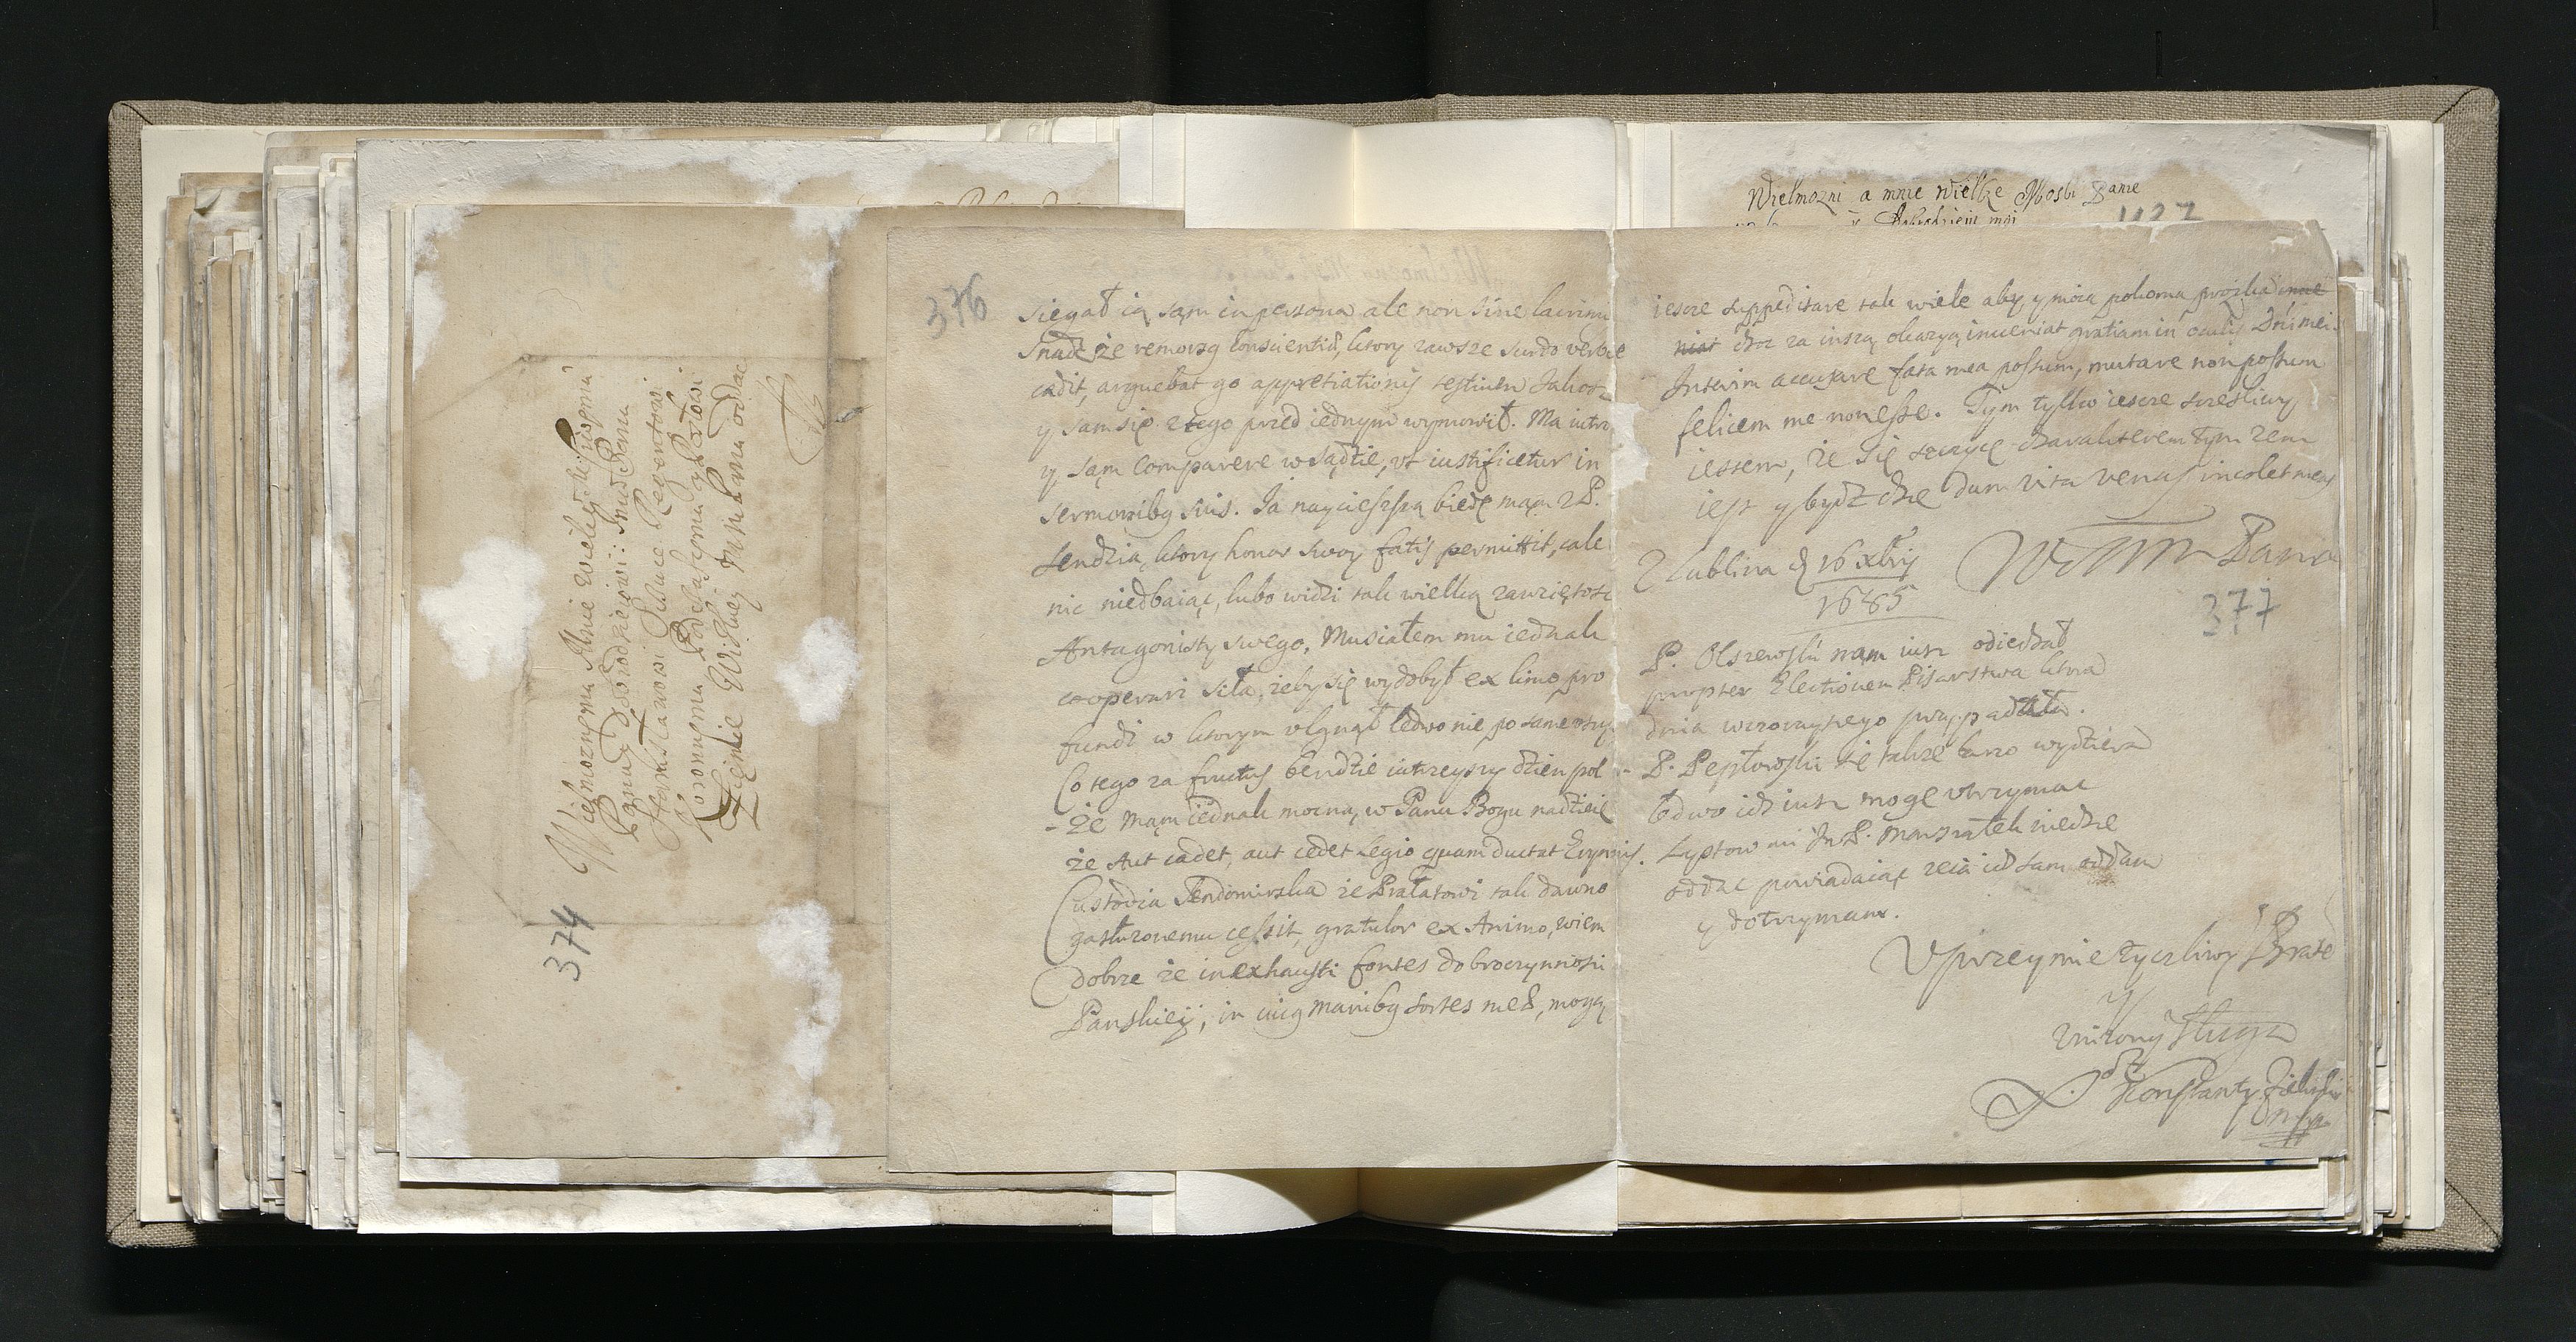 374
Wielmoznemu Mnie Wielce Mosciwemu
Panu y Dobrodzieiowi: Jmści Panu
Stanisławowi Szczuce Regentowi
Koronnemu Podstarosciemu
Ziemie Wiskiey pilno oddać
376
siegał ią sąm in persona ale non sine lacrimis
Snadź że remorsy conscientiæ, ktory zawsze surdo verbere
cædit, arguebat go appretiationis
y sam się z tego przed iednym wymowił. Ma iutro
y sąm comparere w sądzie, vt iustificetur in
sermonibus suis. Ia nayciesszą biedę mąm z P.
Sendzią, ktory honor swoy fatis permittit, cale
nic niedbaiąc, lubo widzi tak wielką zawziętość
Antagonisty swego, Musiałem mu iednak
cooperari siła, żeby się wydobył ex limo pro
fundi w ktorym vlgnął ledwo nie po same vszy
Co tego za fructus bendzie iutrzeyszy dzien pok
-że Mąm iednak mocną w Panu Bogu nadzieię
że Aut cadet, aut cedet Legio quam ductat Erynnis.
Custodia Sendomirska że Prałatowi tak dawno
zasłużonemu cessit, gratulor ex Animo, wiem
dobrze że inexhausti fontes dobroczynnosci
Panskiey, in cuius manibus sortes meæ, mogą
ieszcze suppeditare tak wiele aby y moia pokorna prozba inue
niat choc za inszą okazyą inueniat gratiam in oculis Dni mei.
Interim accusare fata mea possum, mutare non possum
felicem me non esse. Tym tylko ieszcze szczesliwy
iestem, że się szczycę charakterem tym zem
iest y bydz chcę dum vita venas incolet meas
WMM Pana
Z Lublina d 16 xbris
1685
377
P. Olszewski nam iusz odiechał
propter Electionem Pisarstwa ktora
dnia wczorayszego przypadała.
P. Pepłowski się takze barzo wydziera
ledwo ich iusz mogę vtrzymac
Lystow mi Jm P. Marszałek niechce
oddac powiadaiąc ze ia ich sam oddam
y dotrzymam.
Vprzeymie zyczliwy Brat
y
Vnizony sługa
Konstanty Zielinski
Wielmozni a mnie Wielce Mosci Panie